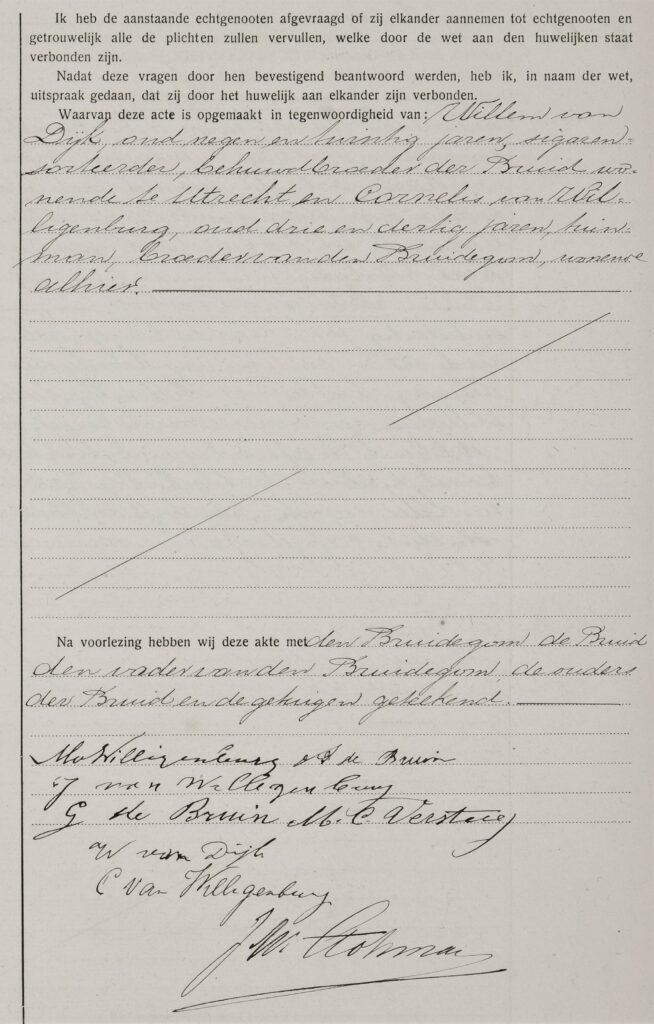 Ik heb de aanstaande echtgenooten afgevraagd of zij elkander aannemen tot echtgenooten en
getrouwelijk alle de plichten zullen vervullen, welke door de wet aan den huwelijken staat
verbonden zijn.
Nadat deze vragen door hen bevestigend beantwoord werden, heb ik, in naam der wet,
uitspraak gedaan, dat zij door het huwelijk aan elkander zijn verbonden.
Waarvan deze acte is opgemaakt in tegenwoordigheid van: Willem van
Dijk, oud negen en twintig jaren, sigaren-
sorteerder, behuwdbroeder der Bruid wo-
nende te Utrecht en Cornelis van Wil-
ligenburg, oud drie en dertig jaren, tuin-
man, broeder van den Bruidegom, wonende
alhier.
Na voorlezing hebben wij deze akte met den Bruidegom de Bruid
den vader van den Bruidegom, de ouders
der Bruid en de getuigen geteekend.
MvWilligenburg de Bruin
J van Willegenburg
G de Bruin M. C. Versteeg
W van Dijk
C van Willigenburg